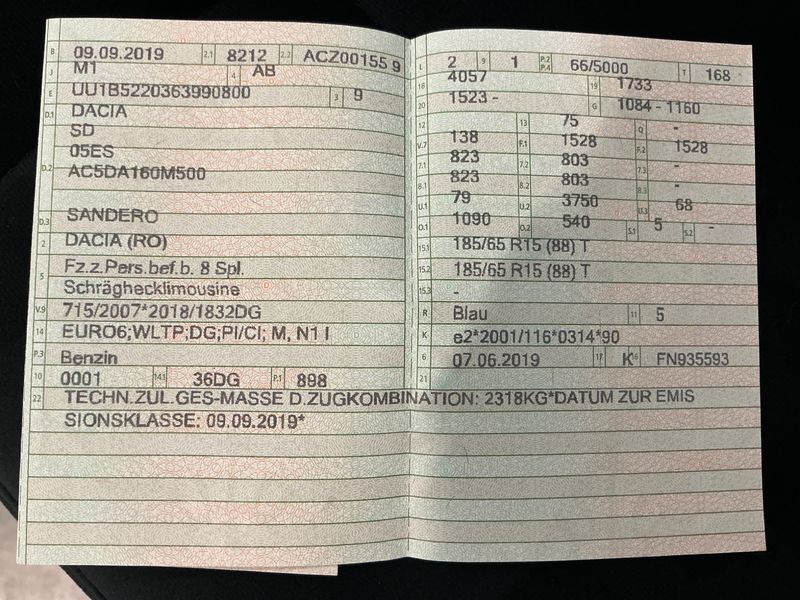 B 09.09.2019 2.1 8212 2.2 ACZ00155 9
J M1 4 AB
E UU1B5220363990800 3 9
D.1 DACIA
SD
05ES
D.2 AC5DA160M500
D.3 SANDERO
2 DACIA (RO)
5 Fz.z.Pers.bef.b. 8 Spl.
Schräghecklimousine
V.9 715/2007*2018/1832DG
14 EURO6;WLTP;DG;PI/CI; M, N1 I
P.3 Benzin
10 0001 14.1 36DG P.1 898
22 TECHN.ZUL.GES-MASSE D.ZUGKOMBINATION: 2318KG*DATUM ZUR EMIS
SIONSKLASSE: 09.09.2019*
L 2 9 1 P.2 P.4 66/5000 T 168
18 4057 19 1733
20 1523 - G 1084 - 1160
12 13 75 Q -
V.7 138 F.1 1528 F.2 1528
7.1 823 7.2 803 7.3 -
8.1 823 8.2 803 8.3 -
U.1 79 U.2 3750 U.3 68
O.1 1090 O.2 540 S.1 5 S.2 -
15.1 185/65 R15 (88) T
15.2 185/65 R15 (88) T
15.3 -
R Blau 11 5
K e2*2001/116*0314*90
6 07.06.2019 17 K 16 FN935593
21